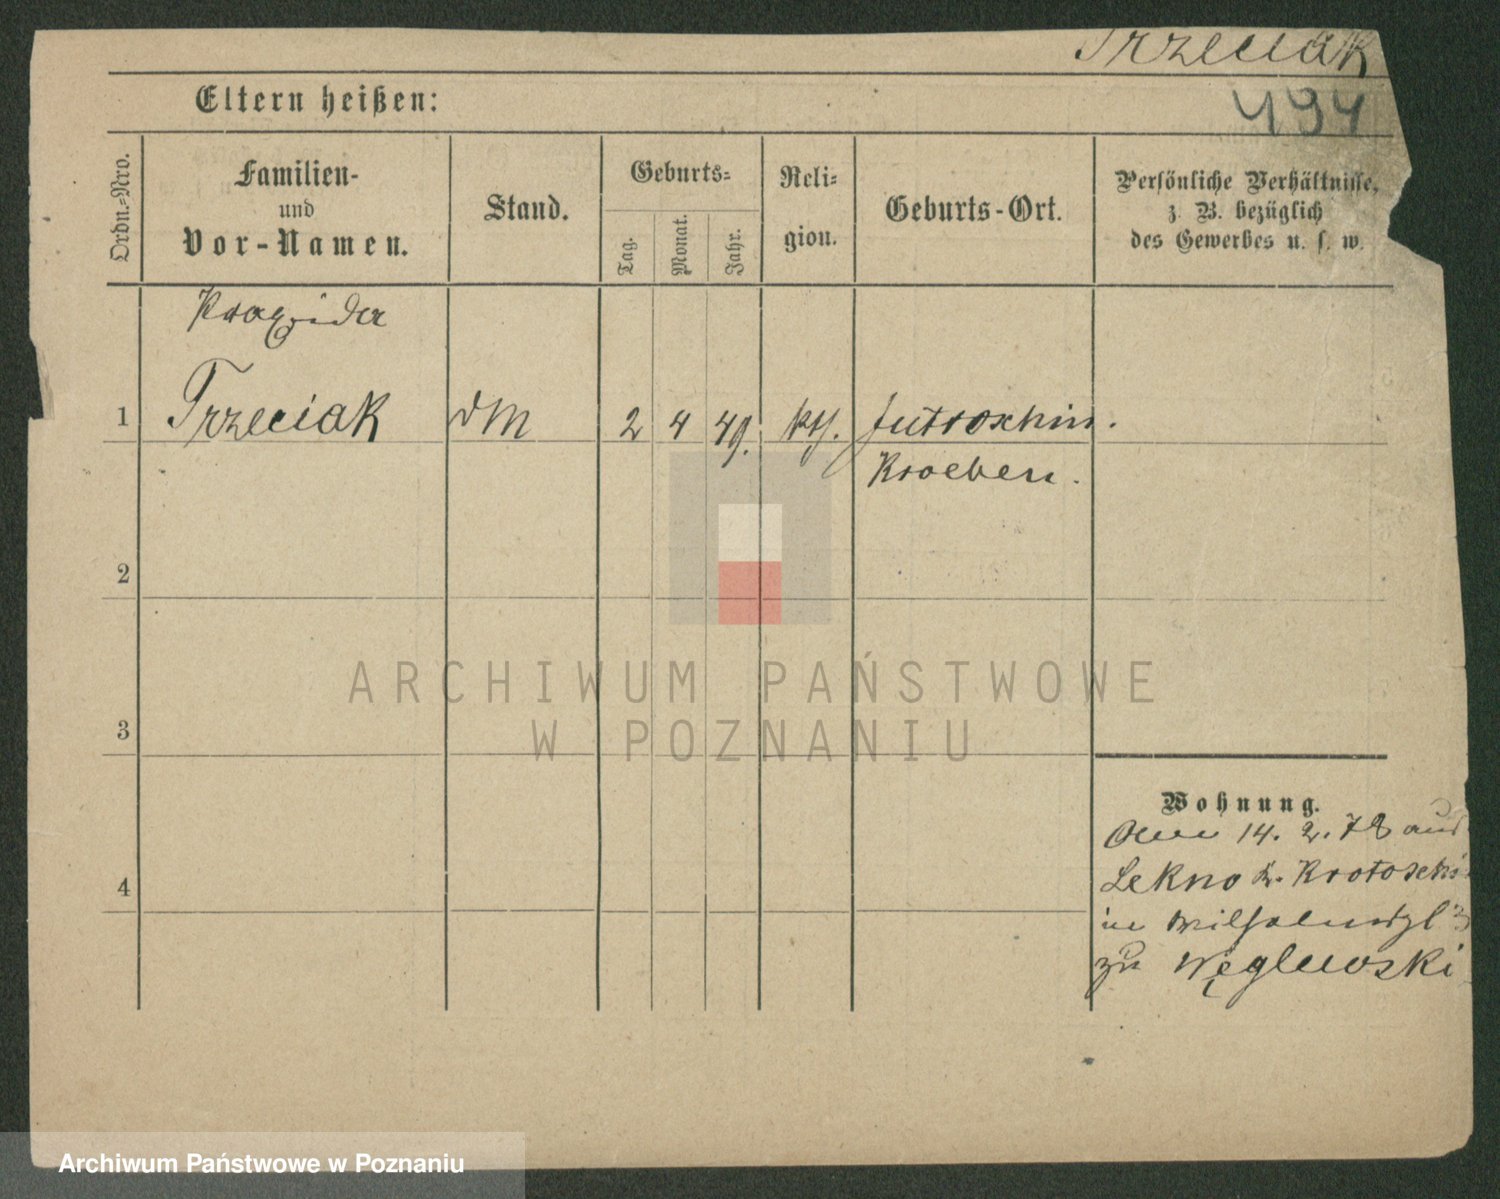 Trzeciak
Eltern heißen:
494
Ordn.-Nro.
Familien-
und
Vor-Namen.
Stand.
Geburts-
Tag.
Monat.
Jahr.
Reli-
gion.
Geburts-Ort.
Persönliche Verhältnisse,
z. B. bezüglich
des Gewerbes u. s. w.
1
Trzeciak
DM
2
4
49.
kth.
Jutroschin.
Kroeben.
2
3
4
Wohnung.
14. 2. 78 aus
Lekno Kr. Krotoschin
in
zu Węglewski
ARCHIWUM PAŃSTWOWE
W POZNANIU
Archiwum Państwowe w Poznaniu